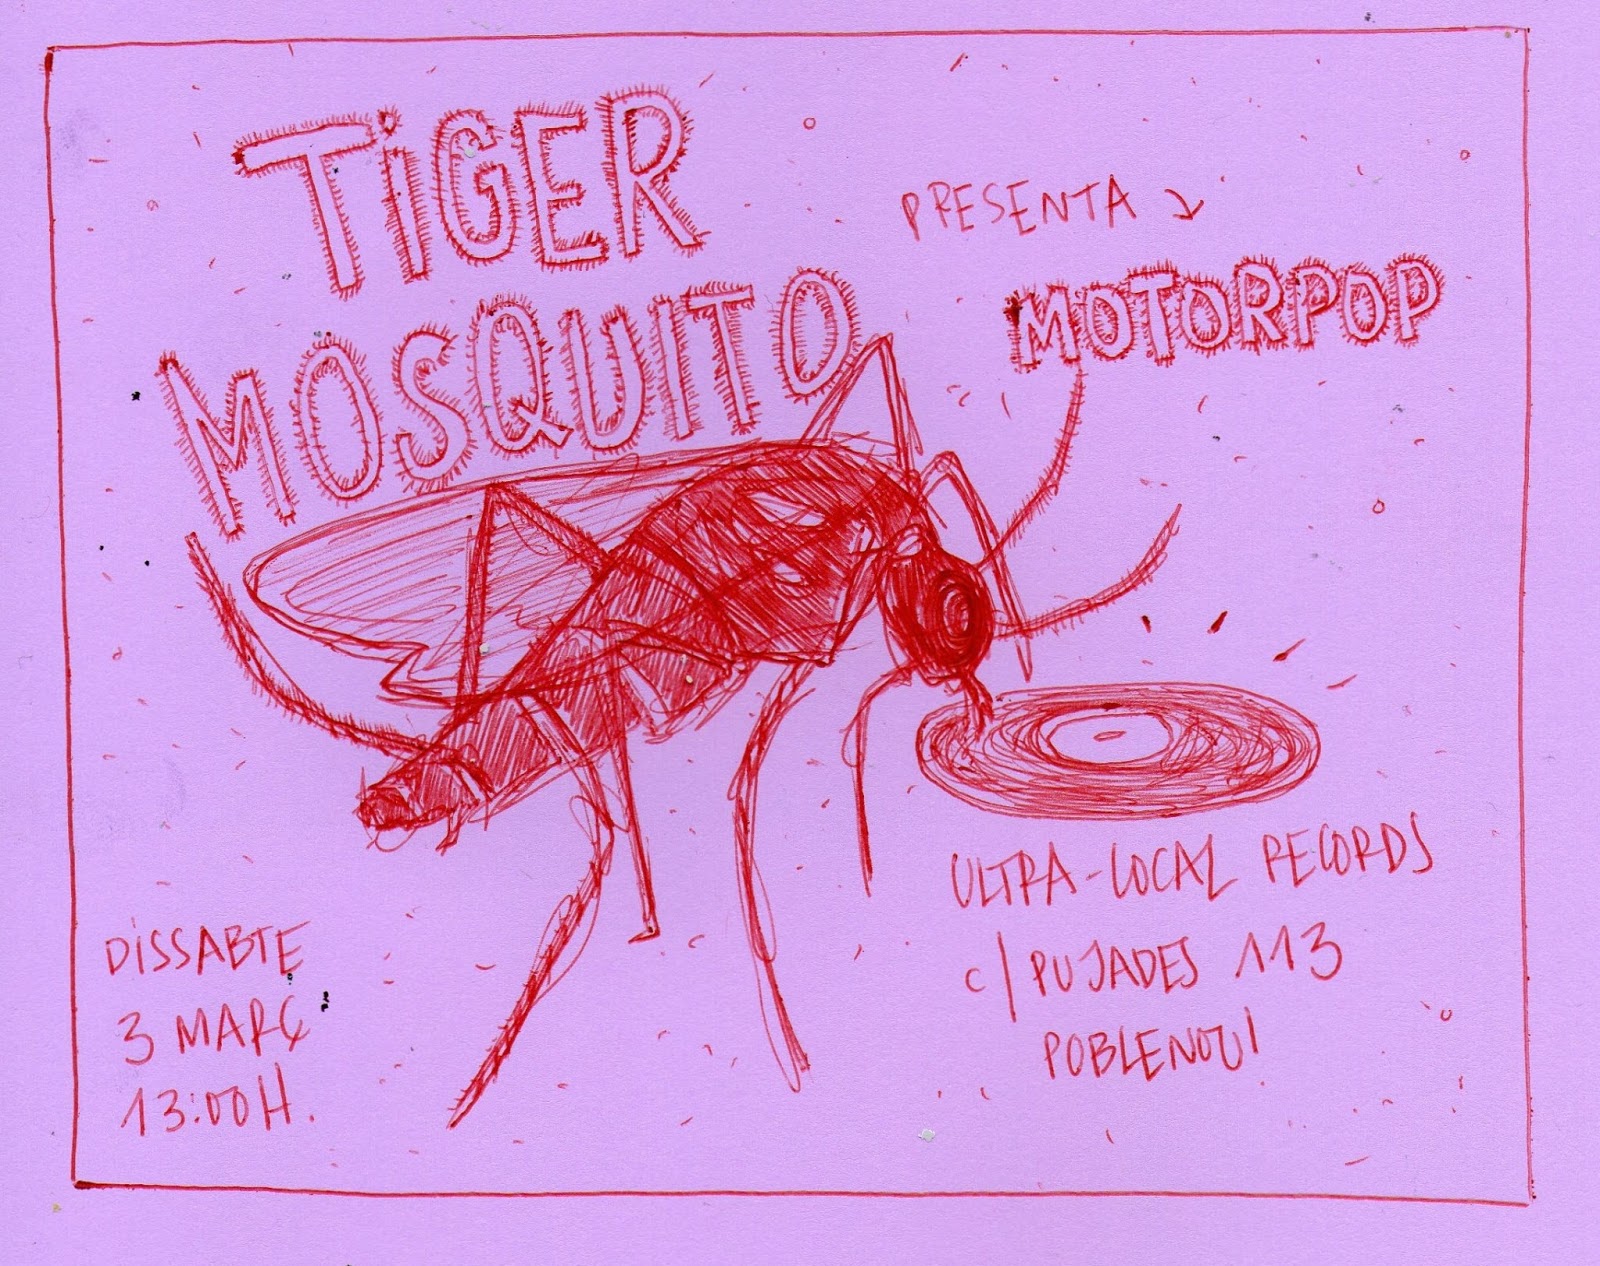 TiGER
MOSQUITO
PRESENTA
MOTORPOP
ULTRA-LOCAL RECORDS
c/PUJADES 113
POBLENOU
DiSSABTE
3 MARÇ
13:00H.